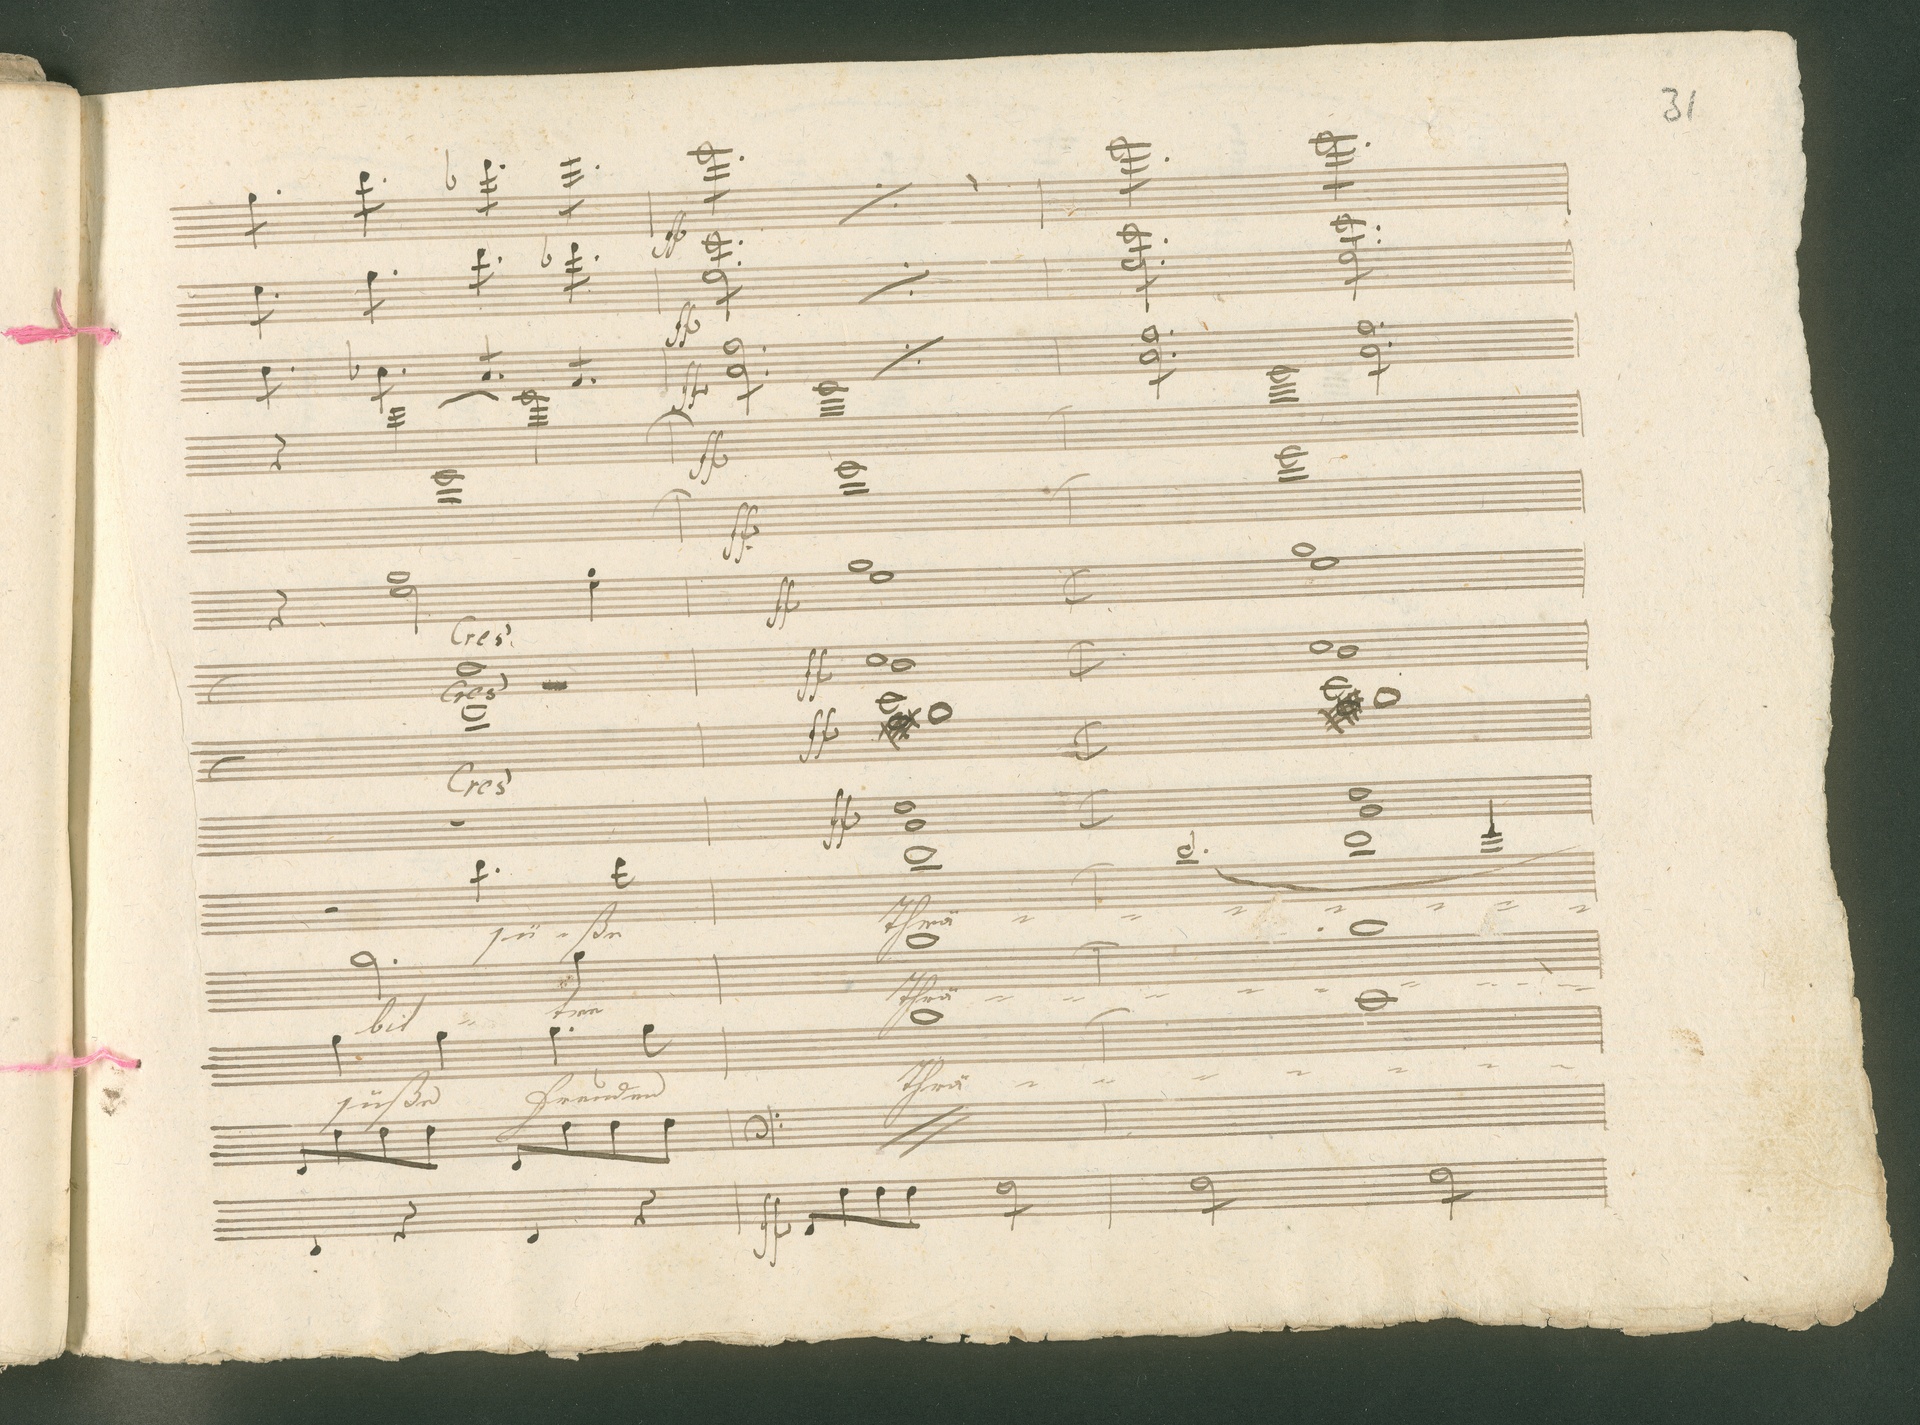 31
ff
ff
ff
ff
ff
ff
Cres
ff
Cres
ff
Cres
ff
sü - ße Thrä - - - - - - -
bit - tre Thrä - - - - - - -
süße Freuden Thrä - - - - - - -
ff